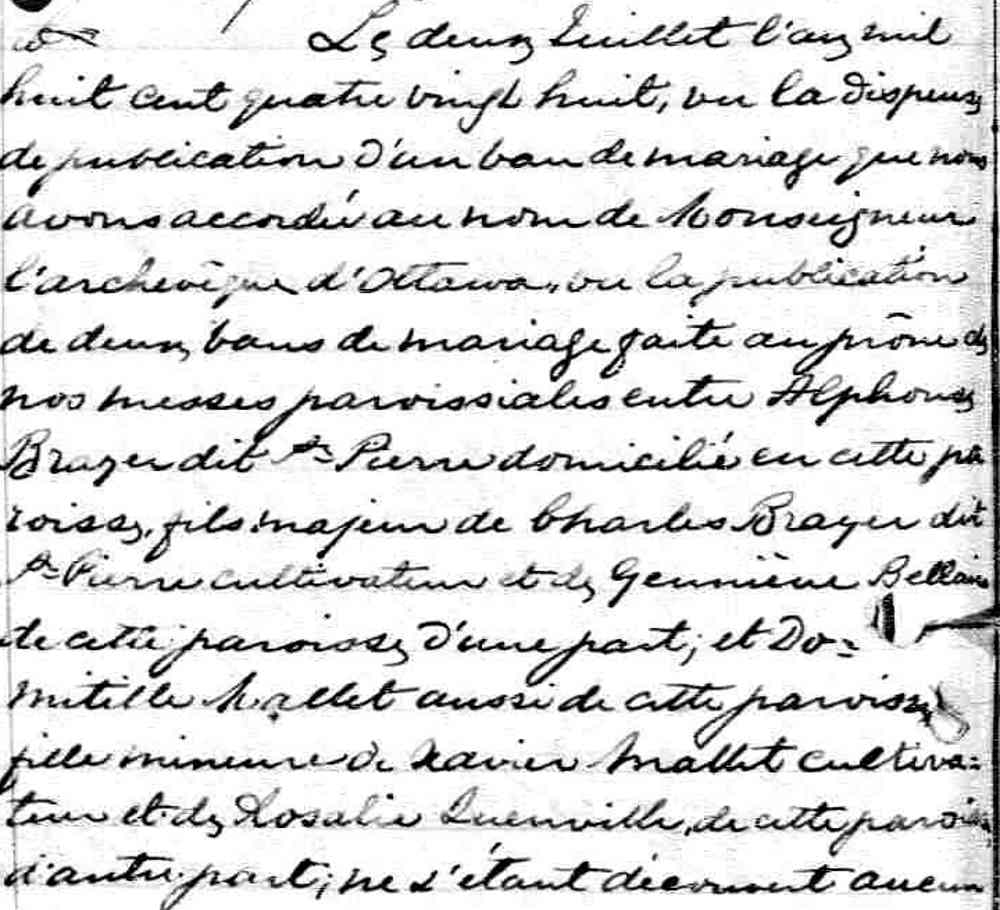 Le deux Juillet l'an mil
huit cent quatre vingt huit, vu la dispense
de publication d'un ban de mariage que nous
avons accordée au nom de Monseigneur
l'archevêque d'Ottawa, vu la publication
de deux bans de mariage faite au prône de
nos messes paroissiales entre Alphonse
Brayer dit St Pierre domicilié en cette pa
roisse, fils majeur de Charles Brayer dit
St Pierre cultivateur et de Bellaire
de cette paroisse d'une part; et Do=
mitille Mallet aussi de cette paroisse
fille mineure de Xavier Mallet cultiva=
teur et de Rosalie Quenville, de cette paroisse
d'autre part; ne s'étant découvert aucun